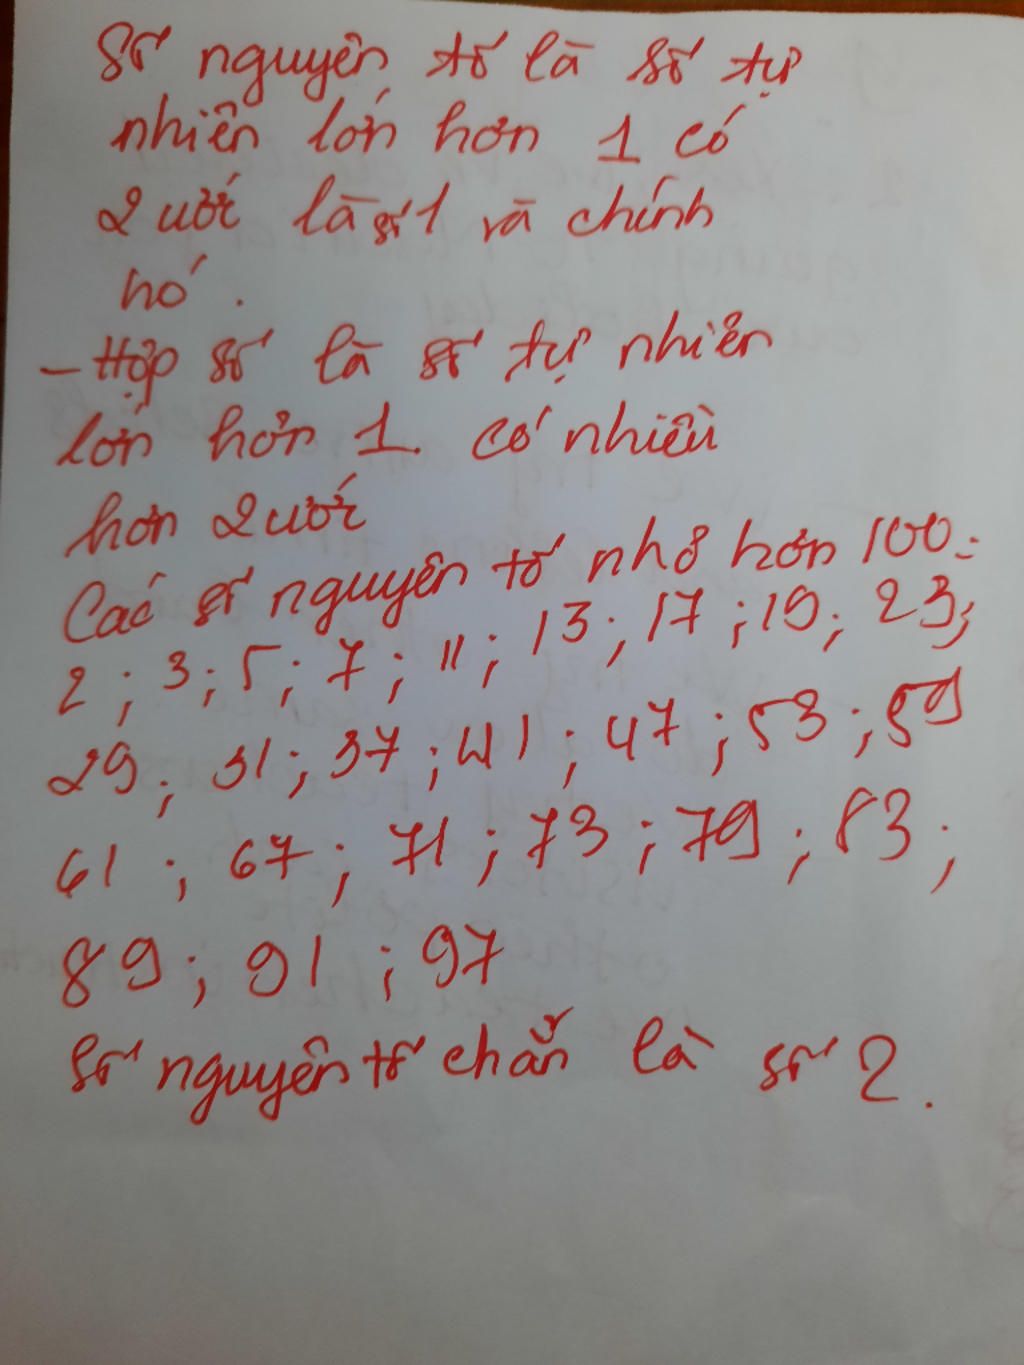 Số nguyên tố là số tự
nhiên lớn hơn 1 có
2 ước là số 1 và chính
nó.
- Hợp số là số tự nhiên
lớn hơn 1. có nhiều
hơn 2 ước
Các số nguyên tố nhỏ hơn 100:
2; 3; 5; 7; 11; 13; 17; 19; 23;
29; 31; 37; 41; 47; 53; 59
61; 67; 71; 73; 79; 83;
89; 91; 97
Số nguyên tố chẵn là số 2.